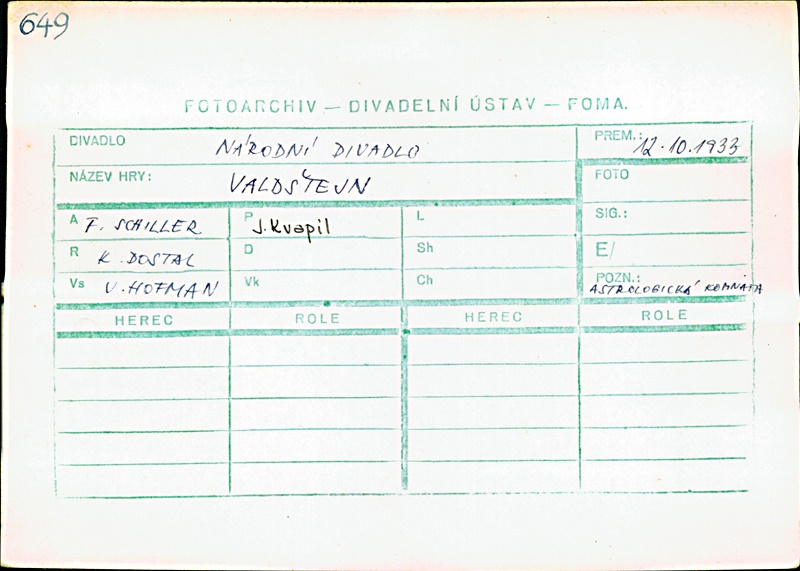 649
FOTOARCHIV — DIVADELNÍ ÚSTAV — FOMA.
DIVADLO NÁRODNÍ DIVADLO PREM.: 12.10.1933
NÁZEV HRY: VALDŠTEJN FOTO
A F. SCHILLER P J. Kvapil L SIG.:
R K. DOSTAL D Sh E/
Vs V. HOFMAN Vk Ch POZN.: ASTROLOGICKÁ KOMNATA
HEREC ROLE HEREC ROLE